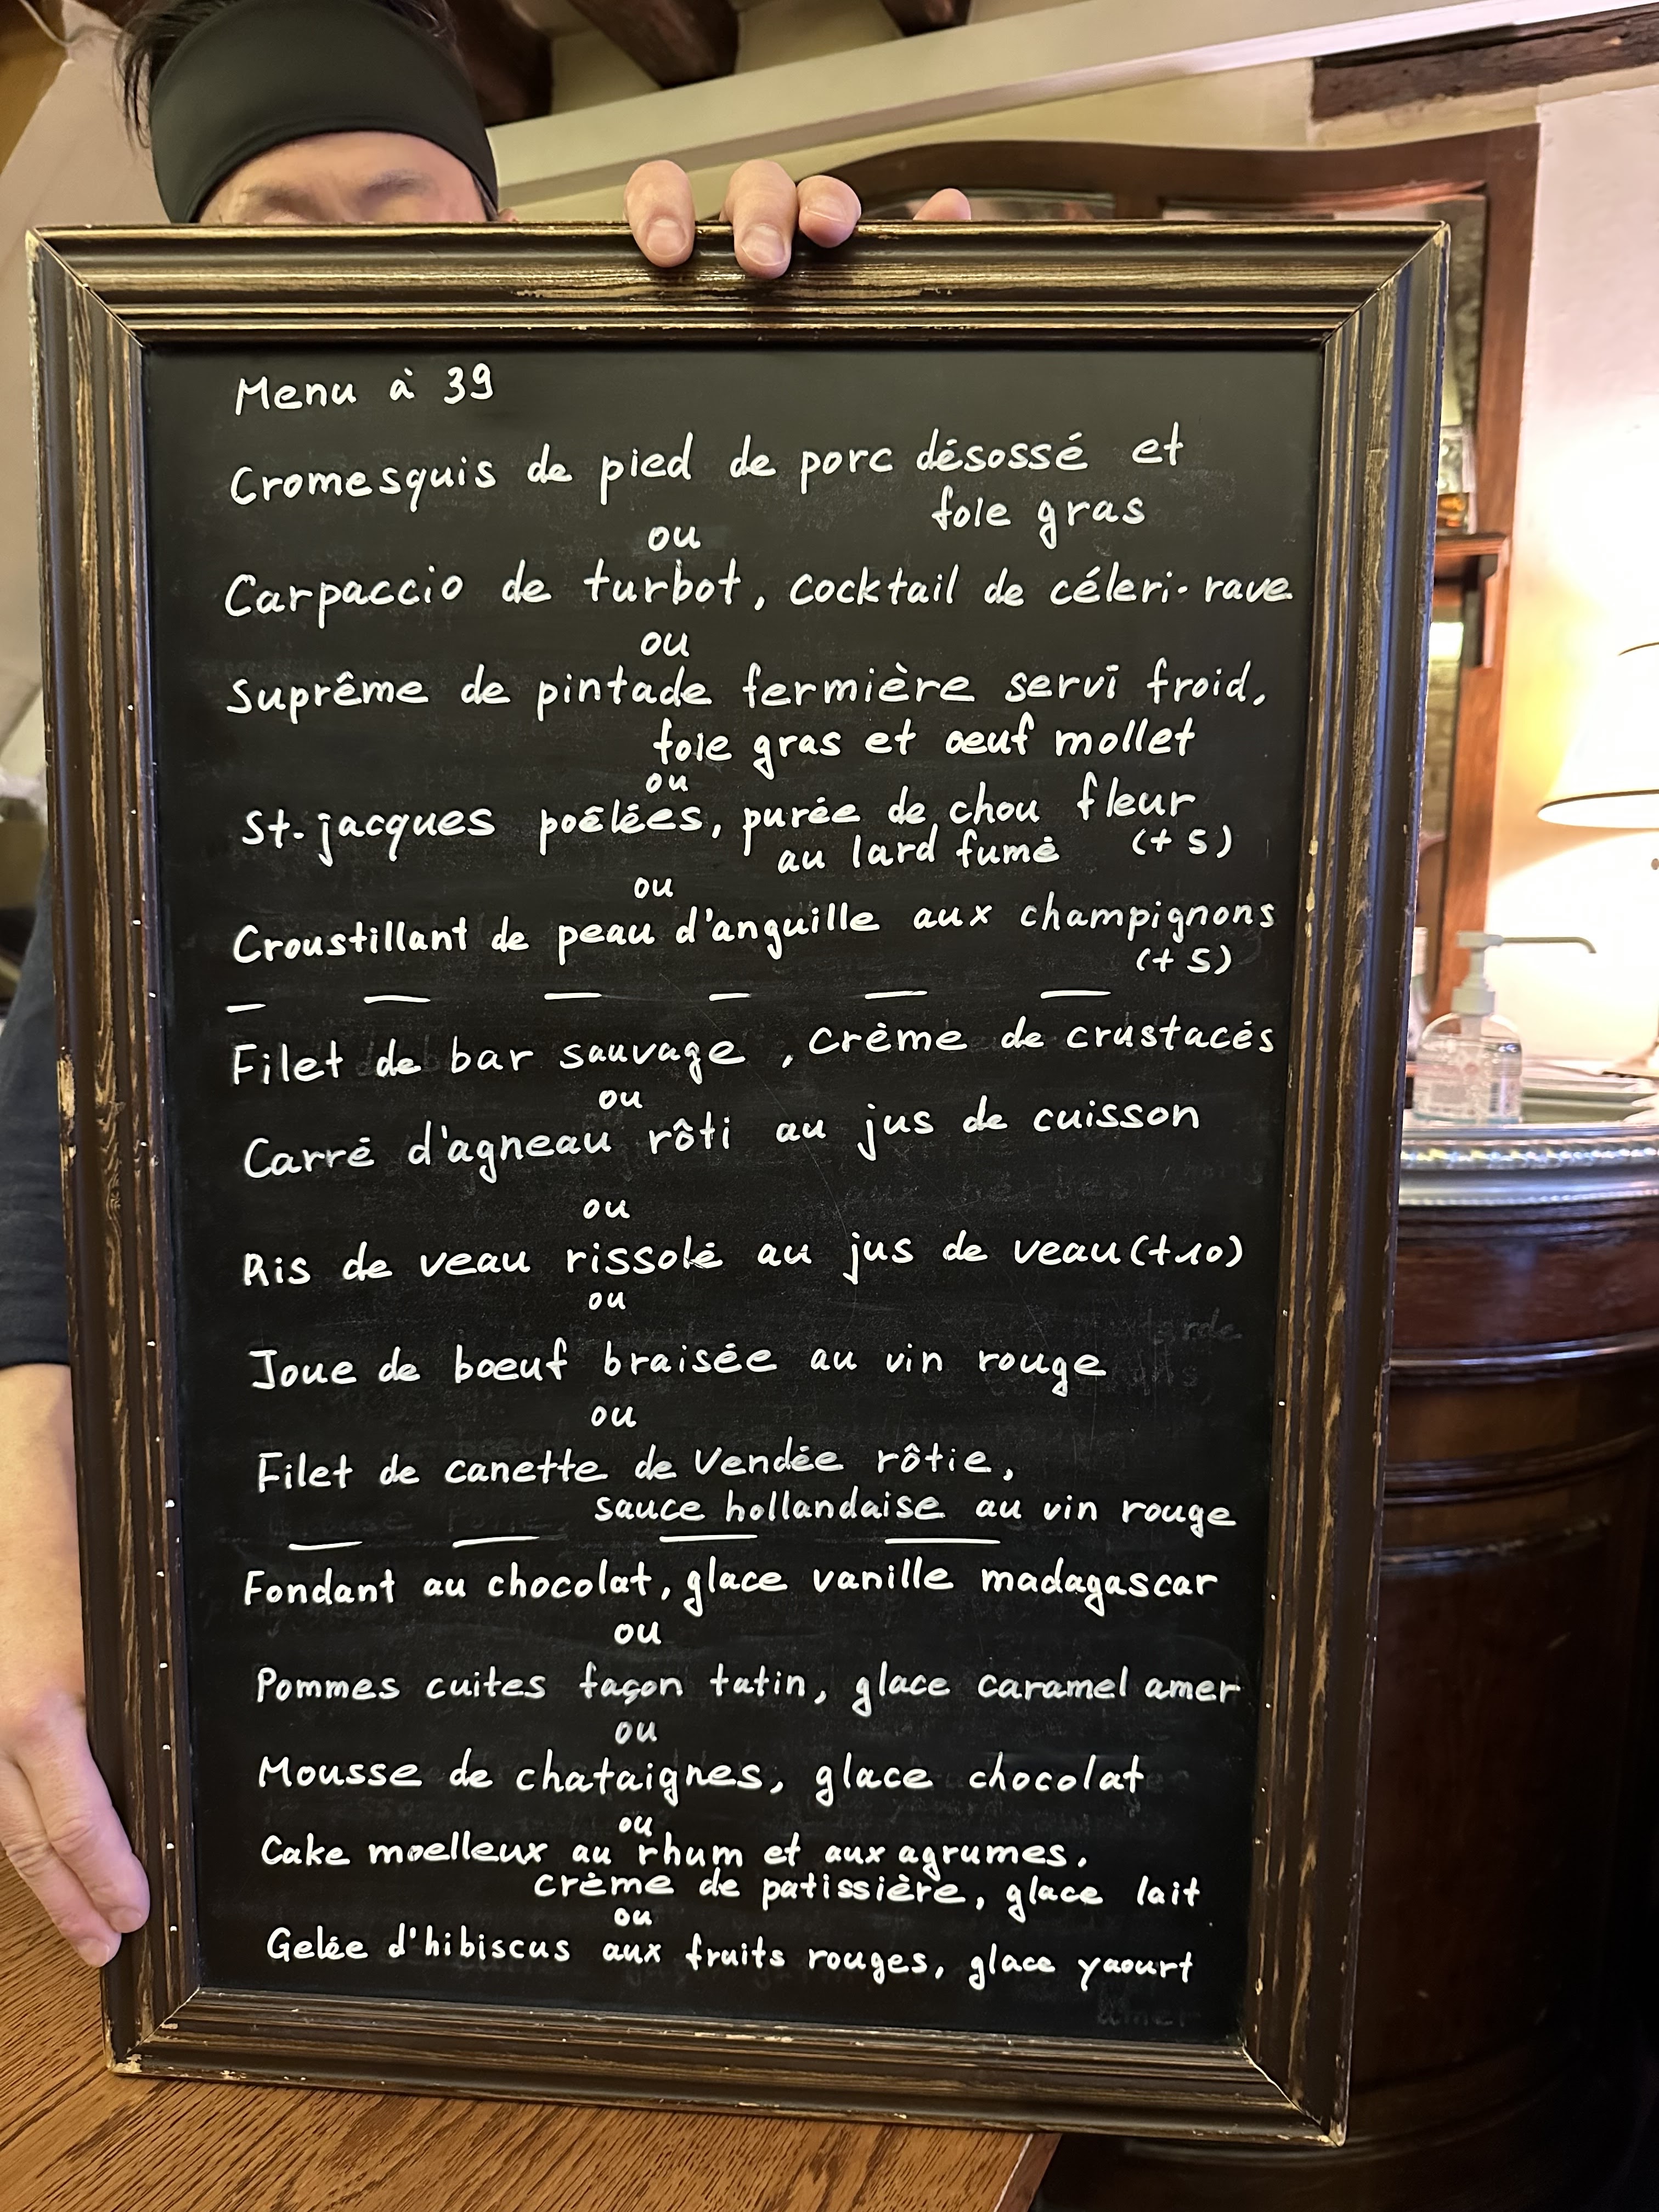 Menu à 39
Cromesquis de pied de porc désossé et
foie gras
ou
Carpaccio de turbot, cocktail de céleri-rave
ou
Suprême de pintade fermière servi froid,
foie gras et oeuf mollet
ou
St-jacques poêlées, purée de chou fleur
au lard fumé (+5)
ou
Croustillant de peau d'anguille aux champignons
(+5)
Filet de bar sauvage, crème de crustacés
ou
Carré d'agneau rôti au jus de cuisson
ou
Ris de veau rissolé au jus de veau (+10)
ou
Joue de boeuf braisée au vin rouge
ou
Filet de canette de Vendée rôtie,
sauce hollandaise au vin rouge
Fondant au chocolat, glace vanille madagascar
ou
Pommes cuites façon tatin, glace caramel amer
ou
Mousse de chataignes, glace chocolat
ou
Cake moelleux au rhum et aux agrumes,
crème de patissière, glace lait
ou
Gelée d'hibiscus aux fruits rouges, glace yaourt